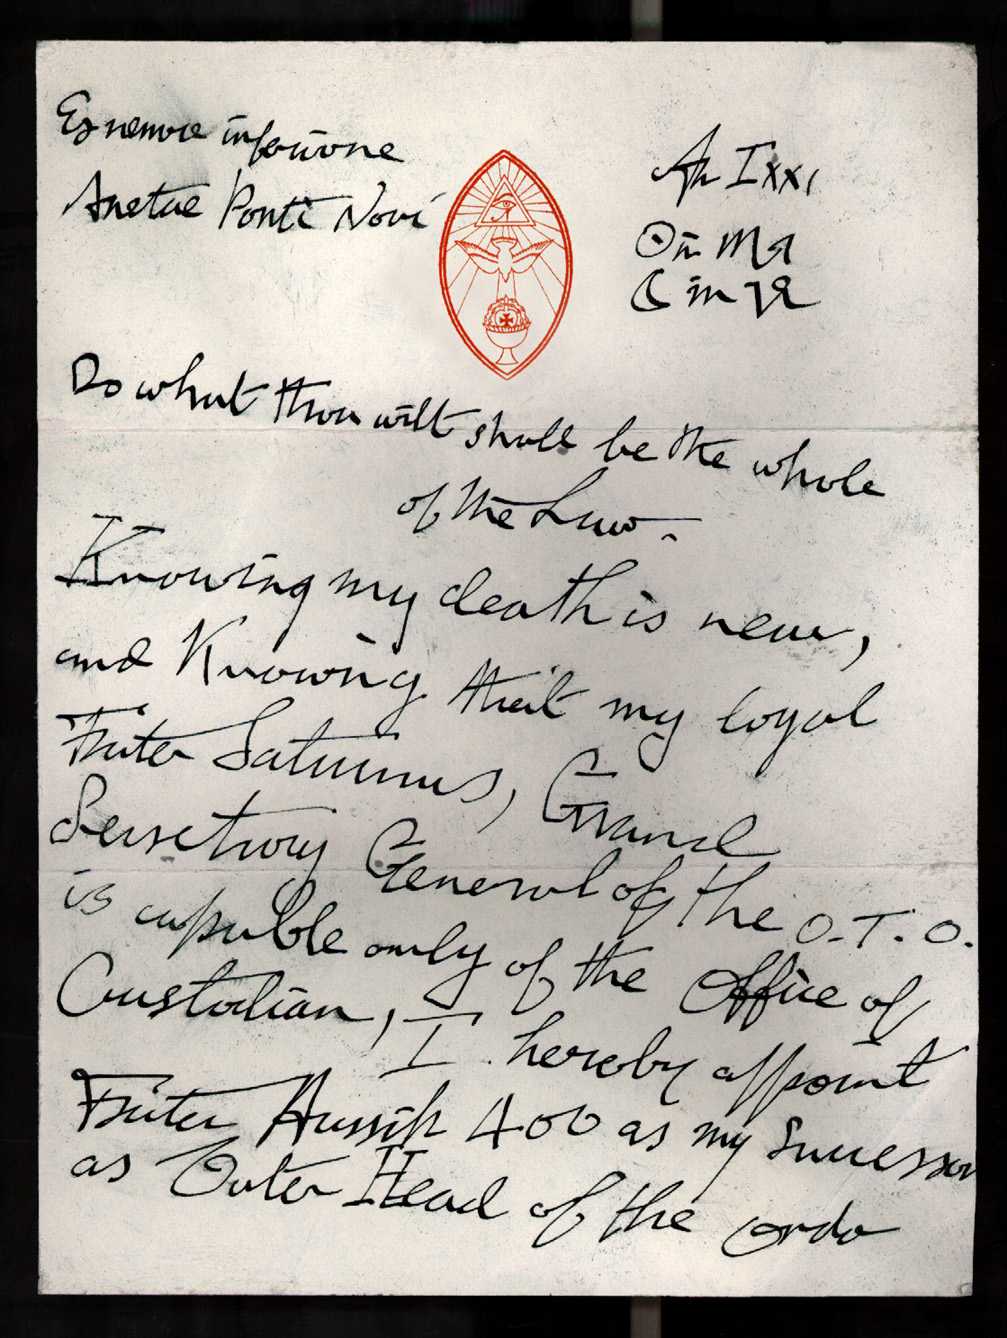 Ex nemore inferiore
Anetae Ponti Novi
An Ixxi
☉ in ♏
☾ in
Do what thou wilt shall be the whole
of the Law.
Knowing my death is near,
and Knowing that my loyal
Frater Saturnus, Grand
Secretary General of the O.T.O.
is capable only of the Office of
Custodian, I hereby appoint
Frater Hassif 400 as my Successor
as Outer Head of the Ordo